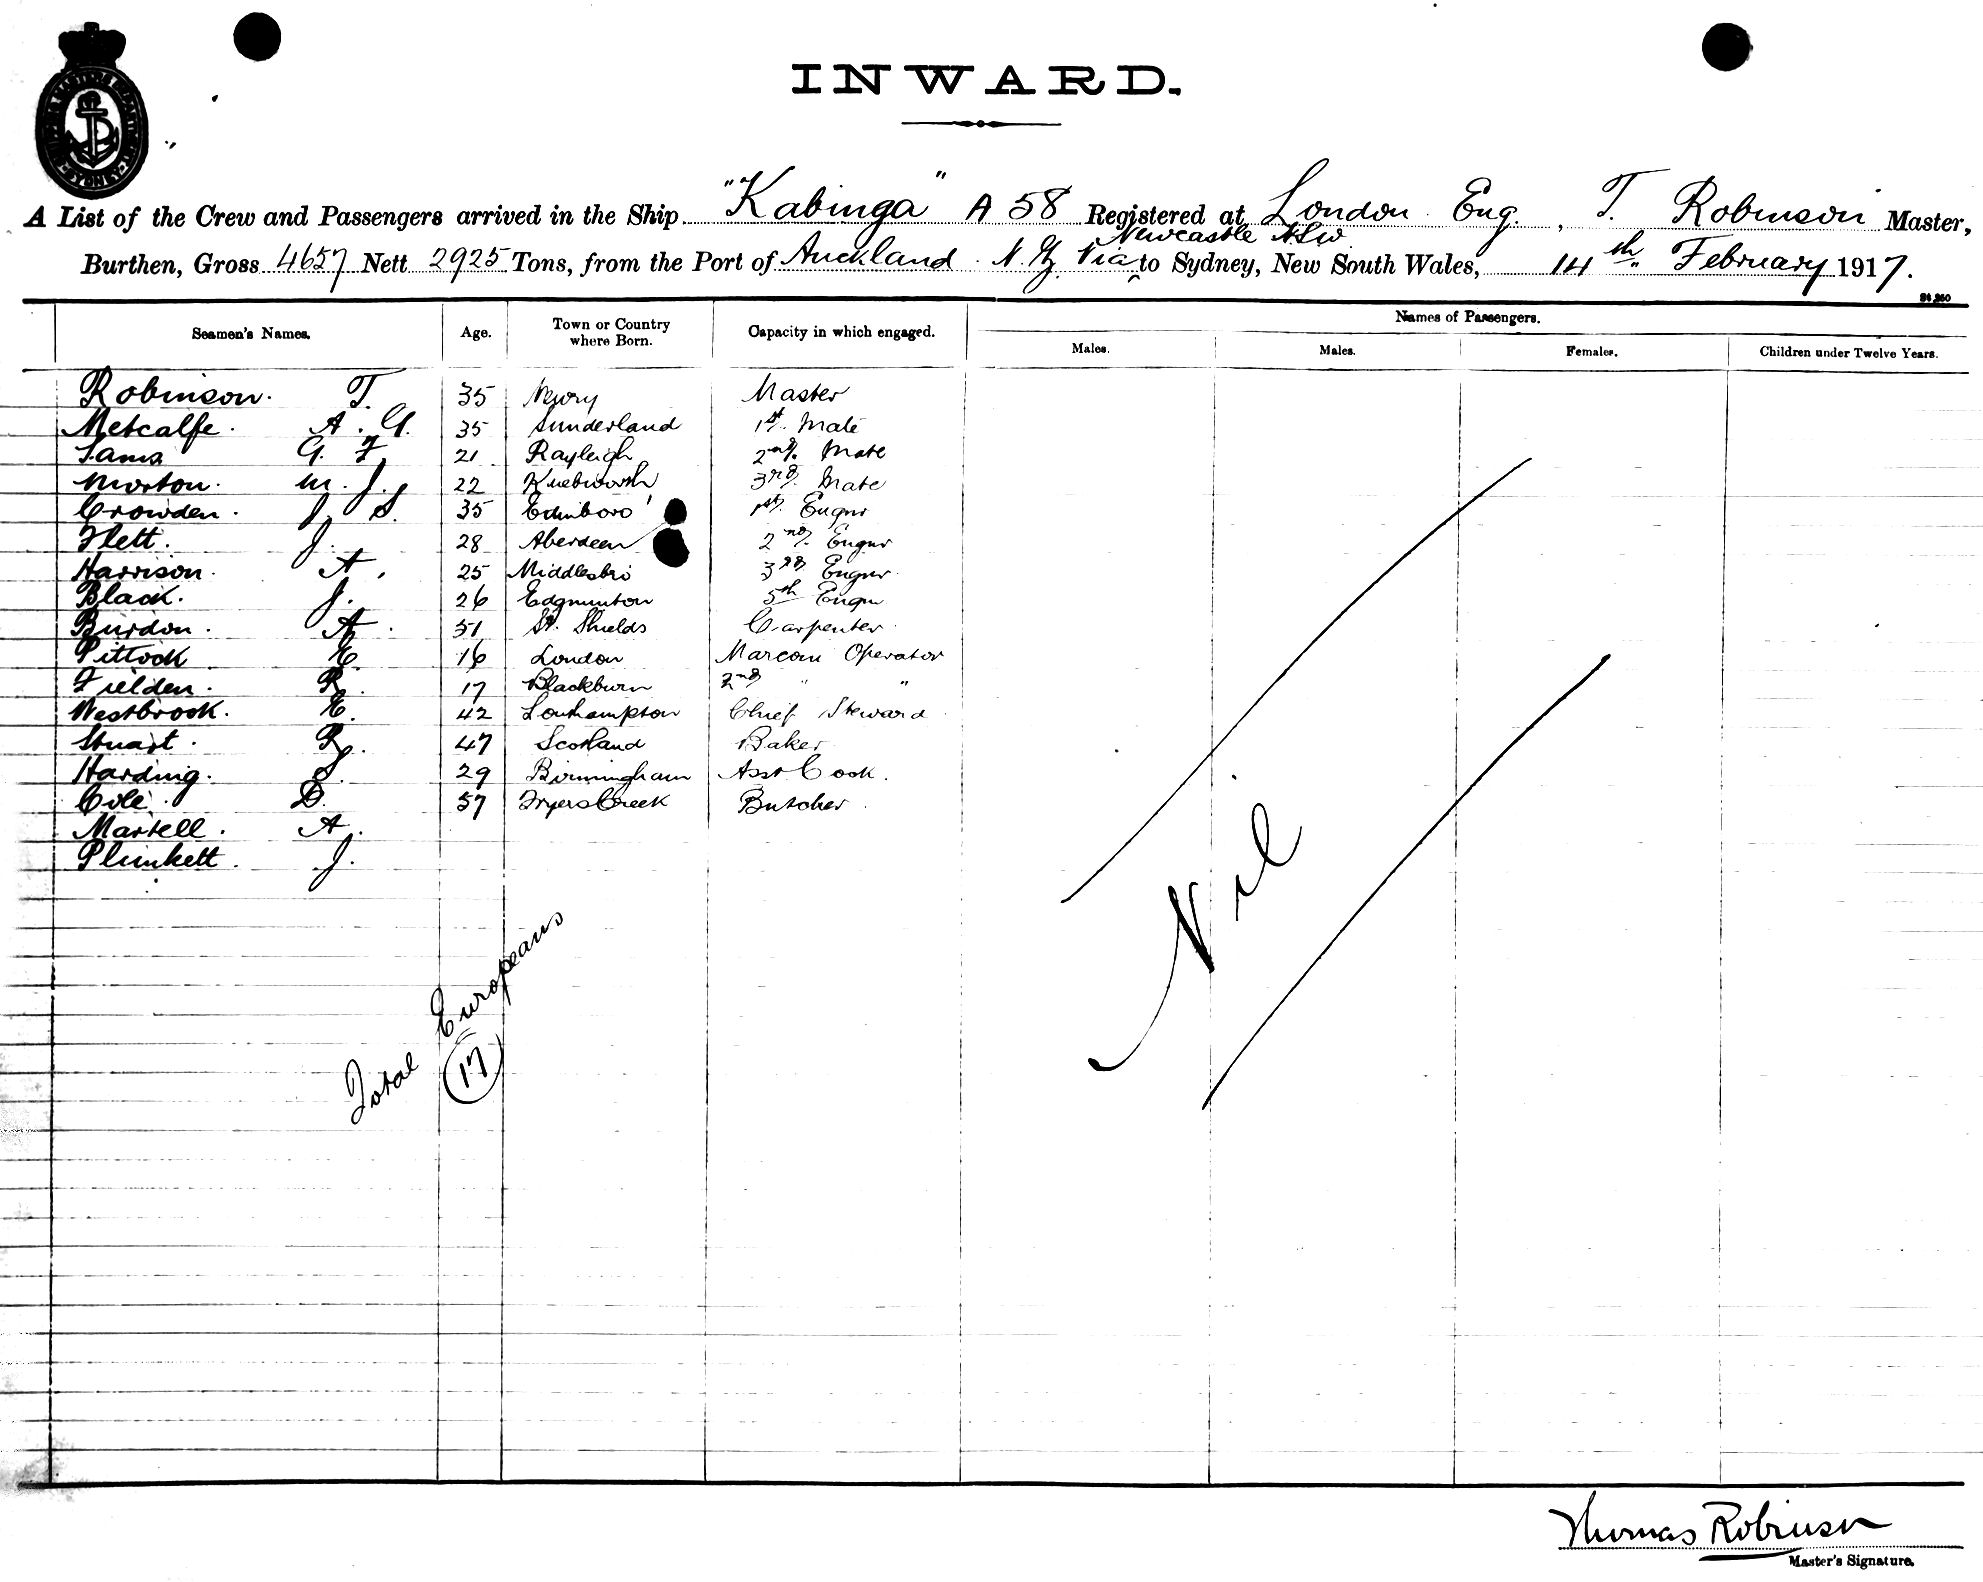 INWARD.
A List of the Crew and Passengers arrived in the Ship "Kabinga" A 58 Registered at London Eng. , T. Robinson Master,
Newcastle NSW
Burthen, Gross 4657 Nett 2925 Tons, from the Port of Auckland N.Z. Via to Sydney, New South Wales, 14th February 1917.
Seamen's Names. Age. Town or Country where Born. Capacity in which engaged. Names of Passengers.
Males. Males. Females. Children under Twelve Years.
Robinson. T. 35 Newry Master
Metcalfe. A. G. 35 Sunderland 1st Mate
Sams G. F. 21 Rayleigh 2nd Mate
Morton. M. J. 22 Knebworth 3rd Mate
Crowden. J. S. 35 Edinboro' 1st Engnr
Flett. J. 28 Aberdeen 2nd Engnr
Harrison. A. 25 Middlesbro 3rd Engnr
Black. J. 26 Edgmunton 5th Engnr
Burdon. A. 51 St. Shields Carpenter
Pittock E. 16 London Marconi Operator
Fielden. R. 17 Blackburn 2nd " "
Westbrook. E. 42 Southampton Chief Steward
Stuart. R. 47 Scotland Baker
Harding. S. 29 Birmingham Asst Cook.
Cole. D. 57 Fryers Creek Butcher
Martell. A.
Plunkett. J.
Nil
Total Europeans
17
Thomas Robinson
Master's Signature.